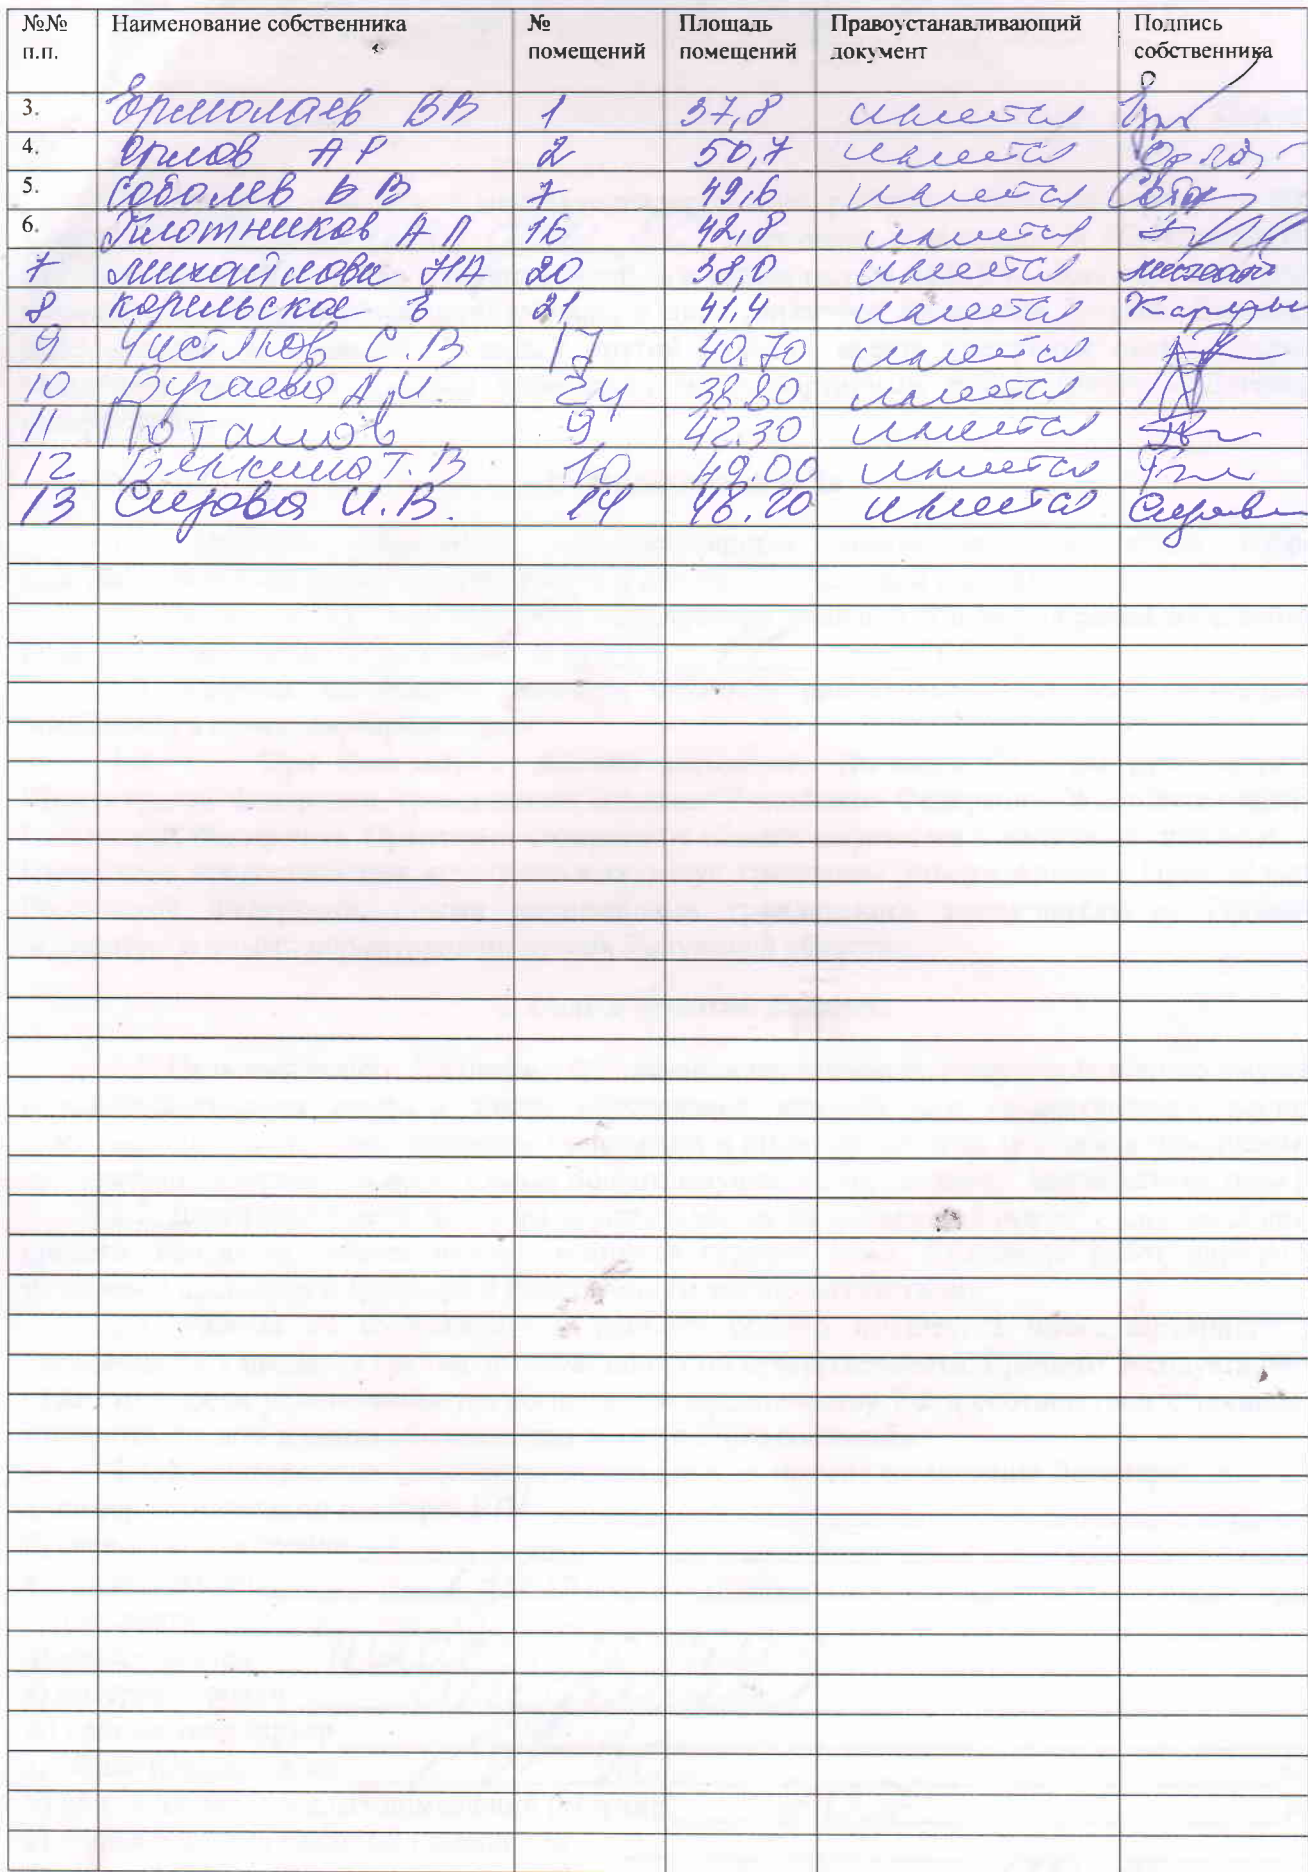 №№ п.п. Наименование собственника № помещений Площадь помещений Правоустанавливающий документ Подпись собственника
3. Ермолаев ВВ 1 37,8 имеется
4. Орлов АР 2 50,7 имеется Орлов
5. Соболев ВВ 7 49,6 имеется
6. Плотников АП 16 42,8 имеется
7 Михайлова НА 20 38,0 имеется
8 карельская в 21 41,4 имеется
9 Чистяков С.В 17 40.70 имеется
10 Бугаева А.И. 24 38.80 имеется
11 Поташов 9 42.30 имеется
12 Т.В 10 49.00 имеется
13 Сизова И.В. 14 48.20 имеется